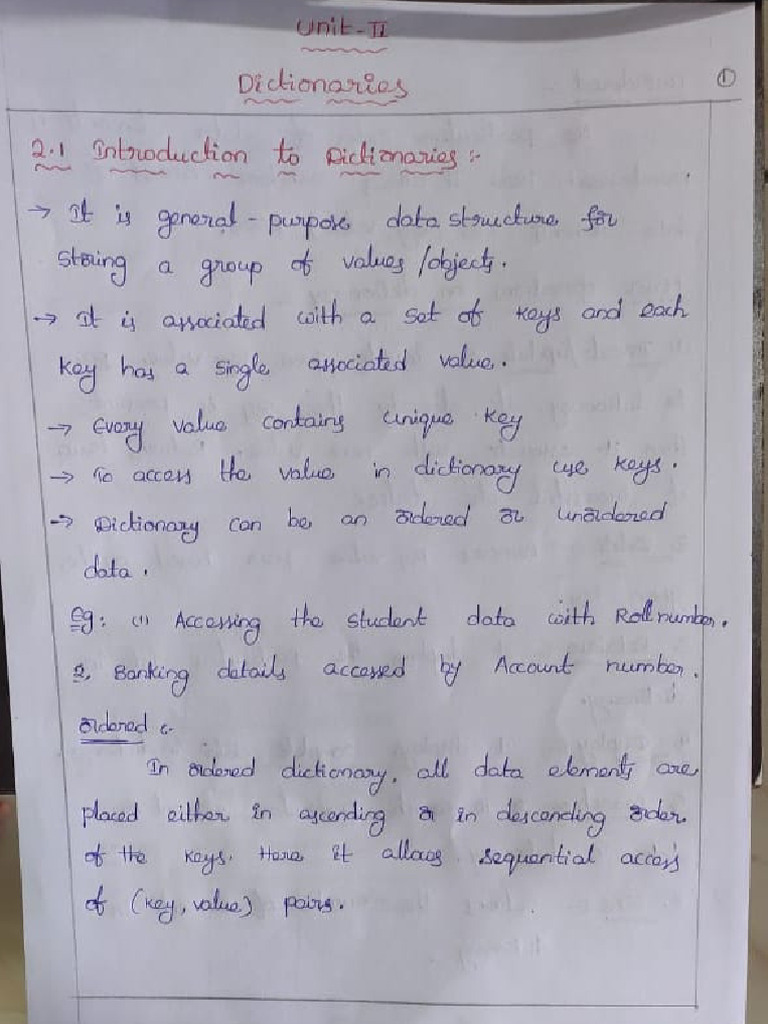 Unit-II
Dictionaries
①
2.1 Introduction to Dictionaries :-
→ It is general-purpose data structure for
storing a group of values/objects.
→ It is associated with a set of keys and each
key has a single associated value.
→ Every value contains unique key
→ To access the value in dictionary use keys.
→ Dictionary can be an ordered or unordered
data.
Eg: (1) Accessing the student data with Roll number.
2, Banking details accessed by Account number.
ordered :-
In ordered dictionary, all data elements are
placed either in ascending or in descending order
of the keys. Here it allows sequential access
of (key, value) pairs.